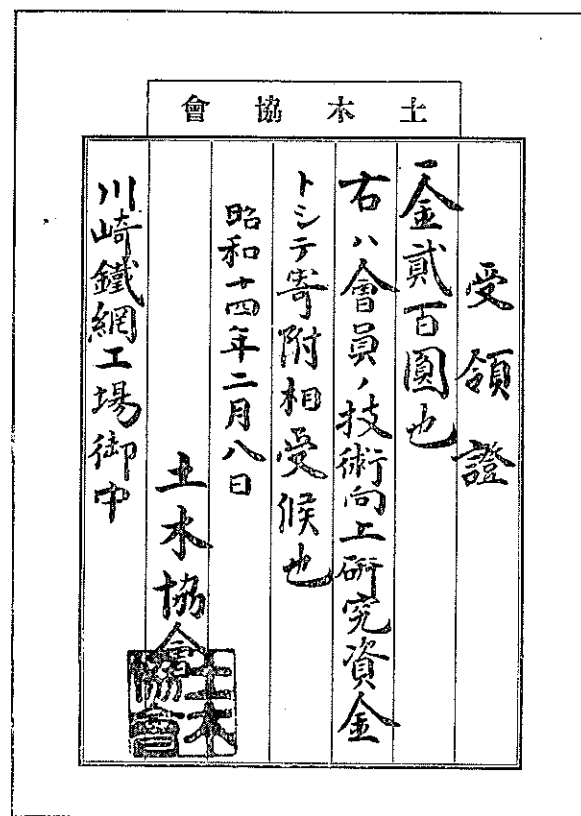 土木協會
受領證
一金貳百圓也
右ハ會員ノ技術向上研究資金
トシテ寄附相受候也
昭和十四年二月八日
土木協會
土木協會
川崎鐵網工場御中